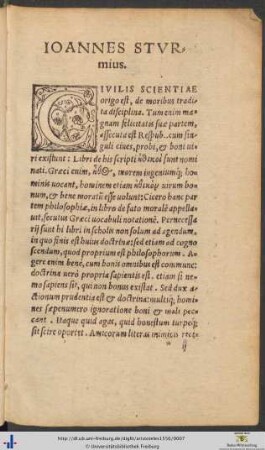 IOANNES STVR
mius.
CIVILIS SCIENTIAE
origo est, de moribus tradi-
ta disciplina. Tum enim ma-
gnam felicitatis suæ partem,
assecuta est Respub. cum sin-
guli ciues, probi, & boni ui-
ri existunt: Libri de his scripti ἠθικοὶ sunt nomi
nati. Græci enim, ἦθος, morem ingeniumq; ho-
minis uocant, hominem etiam ἠθικὸν uirum bo-
num, & bene moratū esse uolunt: Cicero hanc par
tem philosophiæ, in libro de fato moralē appella-
uit, secutus Græci uocabuli notationē. Pernecessa
rij sunt hi libri in scholis non solum ad agendum,
in quo finis est huius doctrinæ: sed etiam ad cogno
scendum, quod proprium est philosophorum. A-
gere enim bene, cum bonis omnibus est commune:
doctrina uerò propria sapientis est. etiam si ne-
mo sapiens sit, quo non bonus existat. Sed dux a-
ctionum prudentia est & doctrina: multiq́; homi-
nes sæpenumero ignoratione boni & mali pec-
cant. Itaque quid agat, quid honestum turpeq́;
sit scire oportet. Amicorum literæ nimicis recte
ij
http://dl.ub.uni-freiburg.de/diglit/aristoteles1556/0007
© Universitätsbibliothek Freiburg